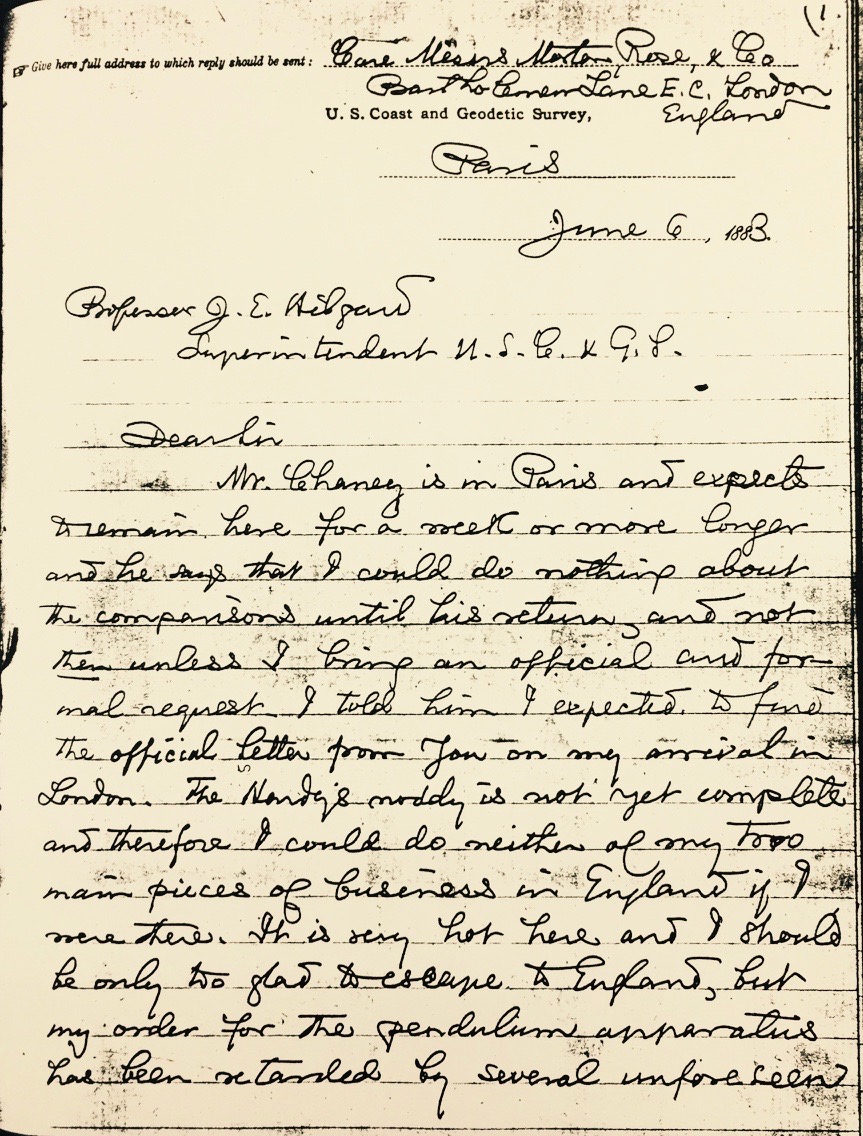 (1.
Give here full address to which reply should be sent: Care Messrs Morton, Rose, & Co
Bartholemew Lane E.C. London
U. S. Coast and Geodetic Survey, England
Paris
June 6, 1883.
Professor J. E. Hilgard
Superintendent U. S. C. & G. S.
Dear Sir
Mr. Chaney is in Paris and expects
to remain here for a week or more longer
and he says that I could do nothing about
the comparisons until his return, and not
then unless I bring an official and for-
mal request. I told him I expected to find
the official letter from you on my arrival in
London. The Hardy's noddy is not yet complete
and therefore I could do neither of my two
main pieces of business in England if I
were there. It is very hot here and I should
be only too glad to escape to England, but
my order for the pendulum apparatus
has been retarded by several unforeseen